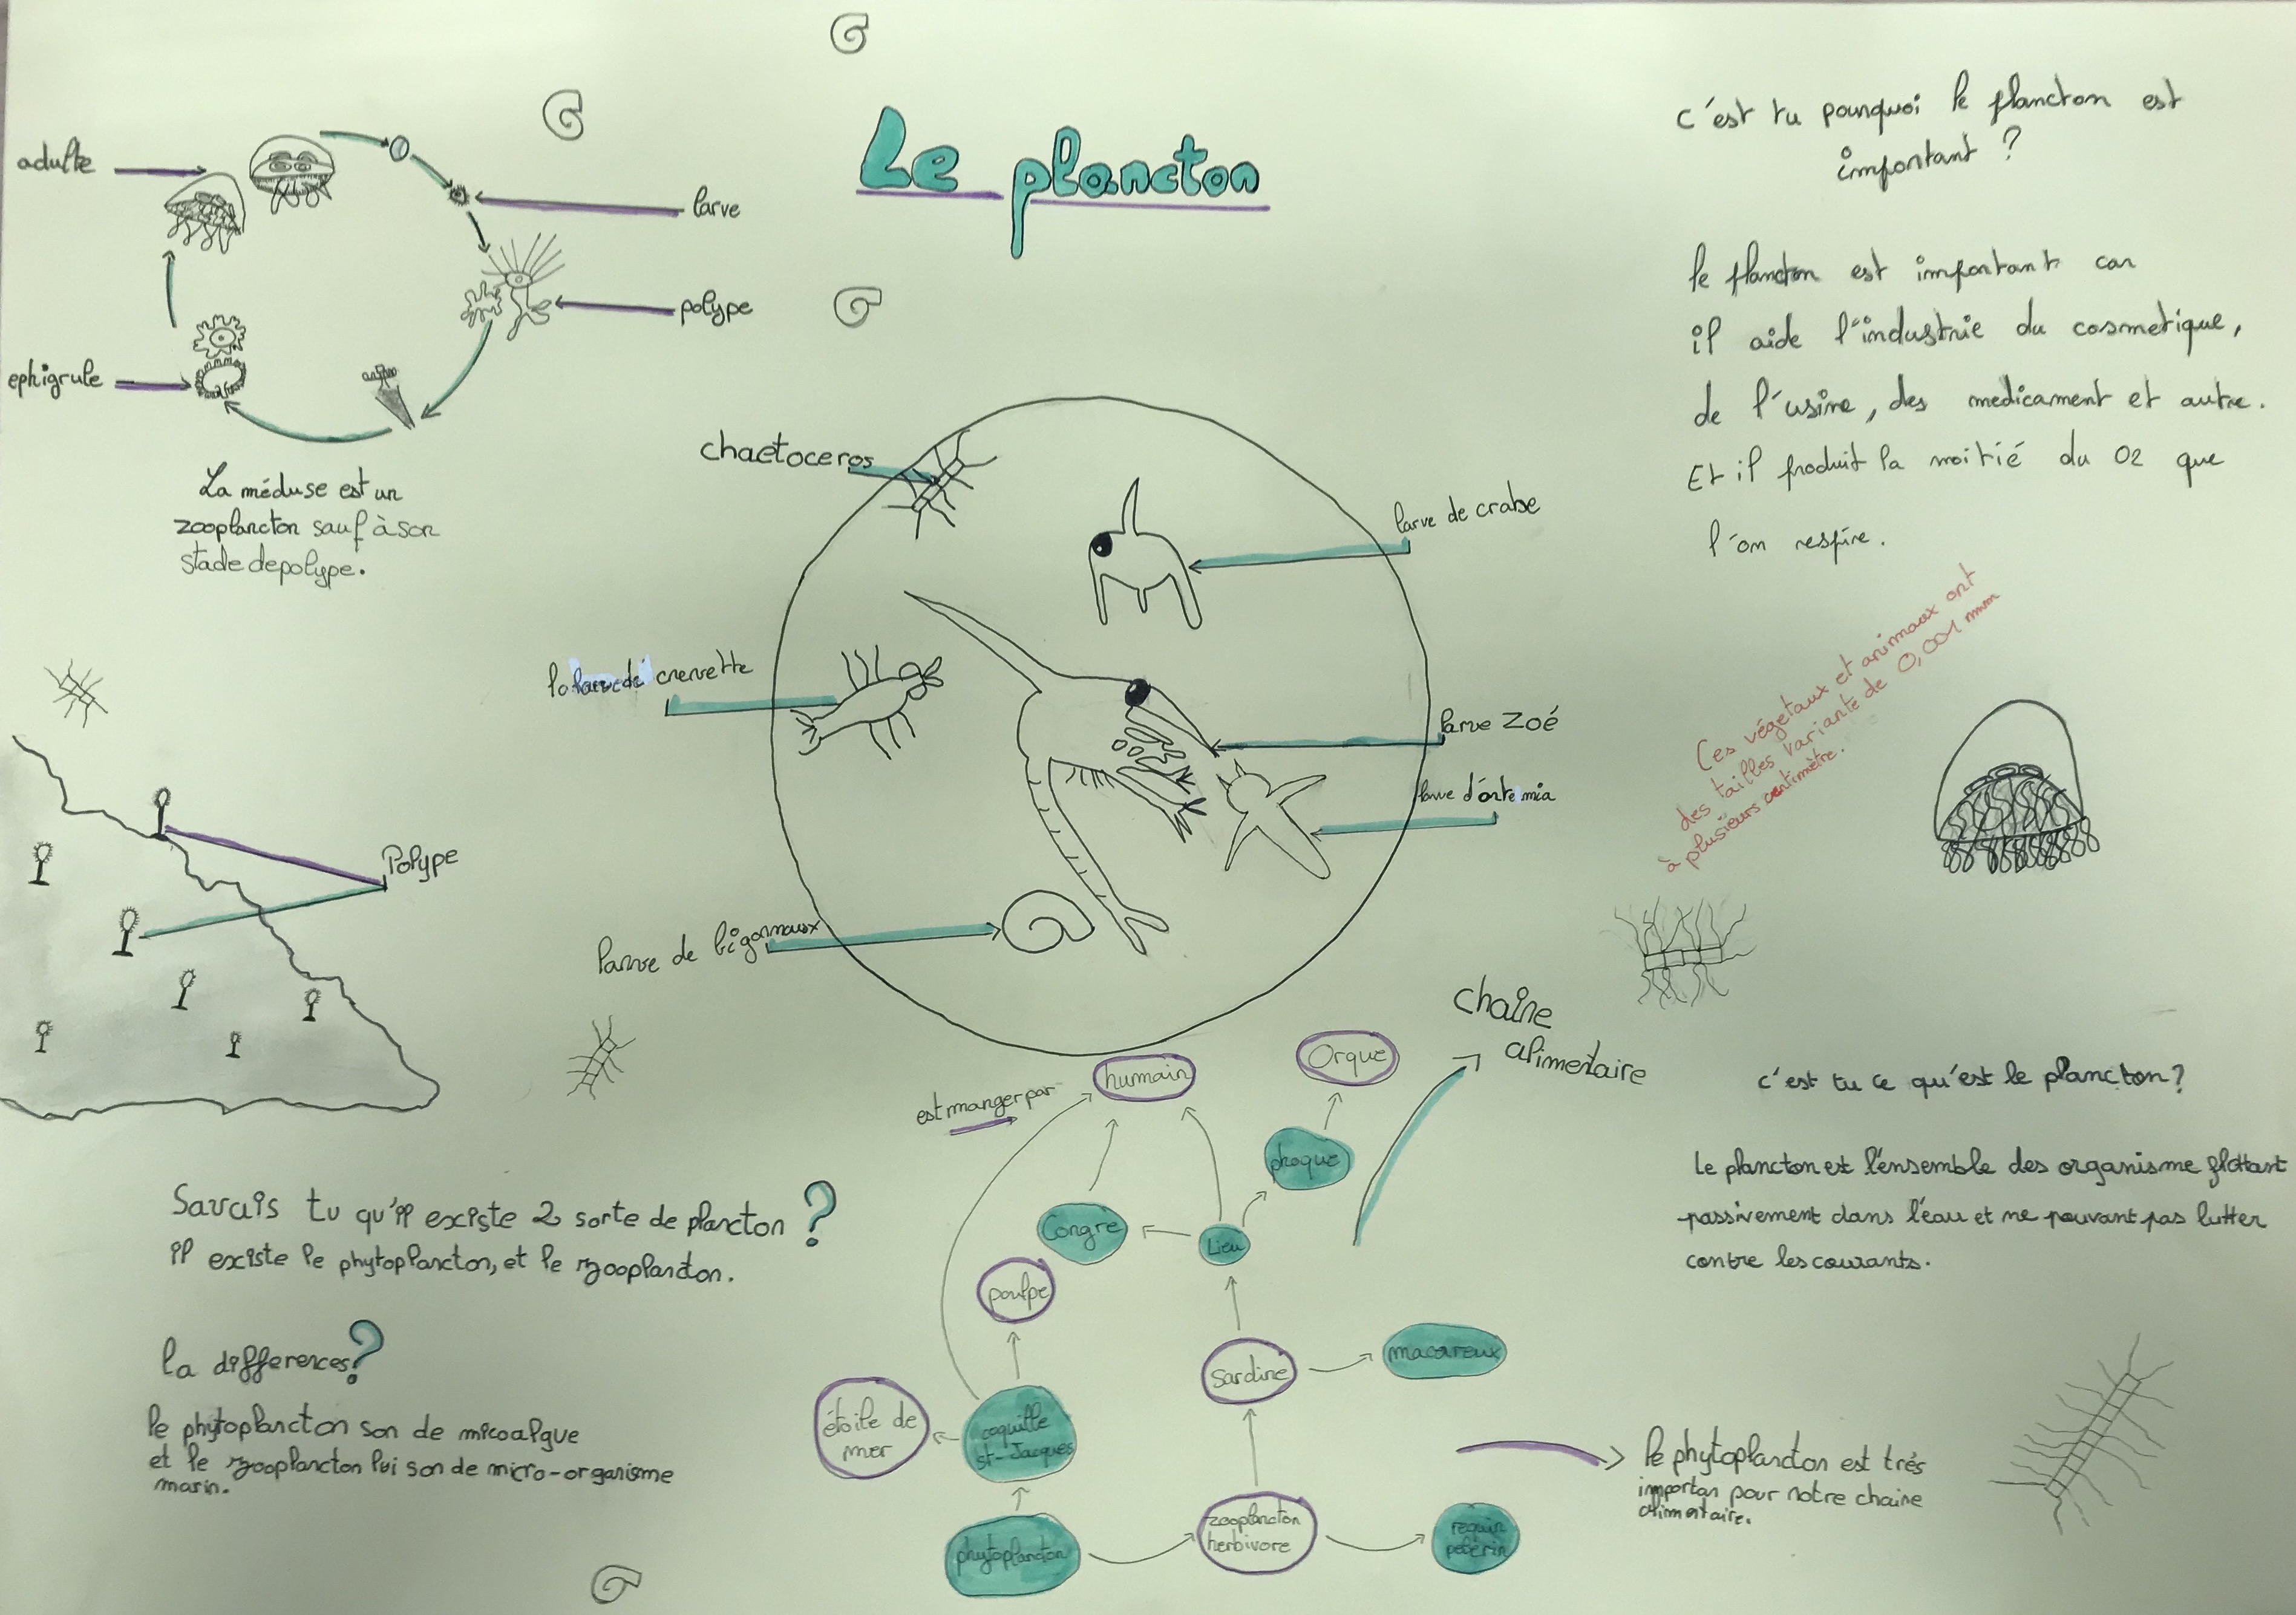 Le plancton
adulte
larve
polype
ephigrule
La méduse est un
zooplancton sauf à son
stade de polype.
c'est tu pourquoi le plancton est
important ?
le plancton est important car
il aide l'industrie du cosmetique,
de l'usine, des medicament et autre.
Et il produit la moitié du O2 que
l'on respire.
chaetoceros
larve de crabe
crevette
larve Zoé
larve d'artemia
larve de bigornaux
Ces végetaux et animaux ont
des tailles variante de 0,001 mm
à plusieurs centimètre.
Polype
chaîne
alimentaire
est manger par
humain
Orque
phoque
Congre
Lieu
poulpe
sardine
macareux
étoile de
mer
coquille
st-Jacques
phytoplancton
zooplancton
herbivore
requin
pelerin
c'est tu ce qu'est le plancton ?
Le plancton est l'ensemble des organisme flottant
passivement dans l'eau et ne pouvant pas lutter
contre les courants.
Savais tu qu'il existe 2 sorte de plancton ?
il existe le phytoplancton, et le zooplancton.
la differences ?
le phytoplancton son de micoalgue
et le zooplancton lui son de micro-organisme
marin.
le phytoplancton est trés
importan pour notre chaine
alimentaire.